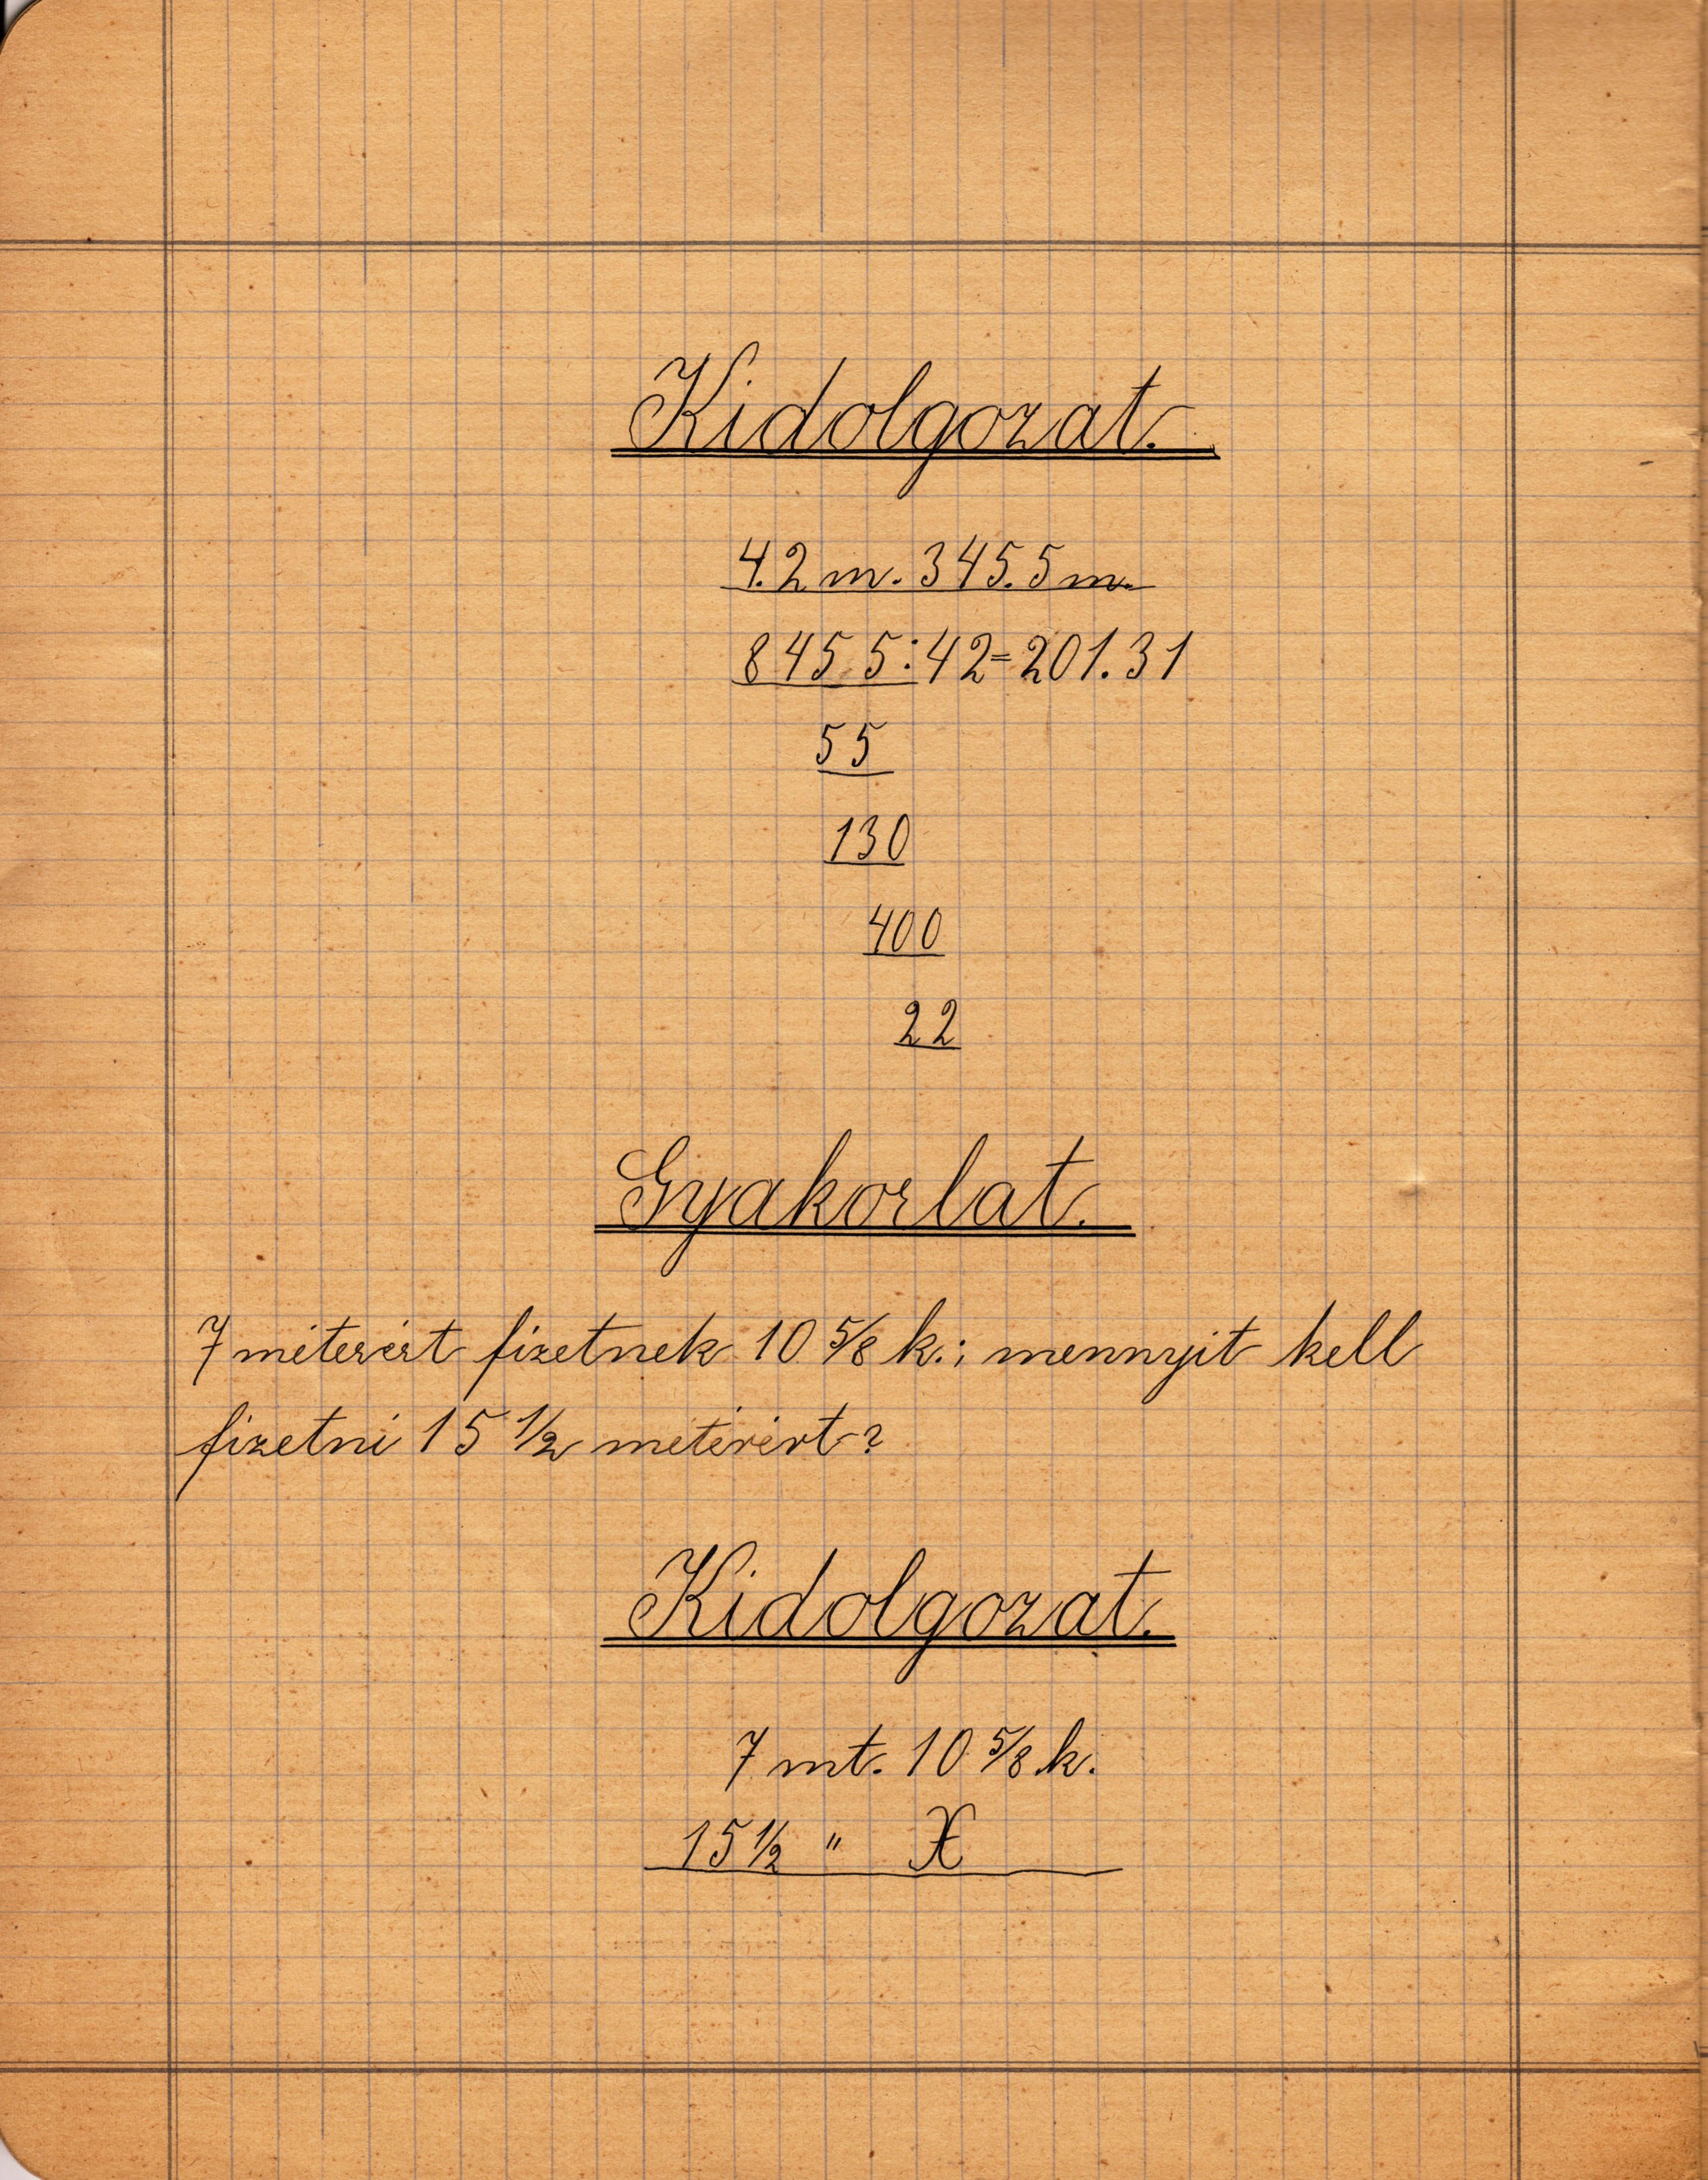 Kidolgozat.
4.2 m. 345.5 m.
8455:42=201.31
55
130
400
22
Gyakorlat.
7 méterért fizetnek 10 5/8 k.; mennyit kell
fizetni 15 1/2 méterért?
Kidolgozat.
7 mt. 10 5/8 k.
15 1/2 " X